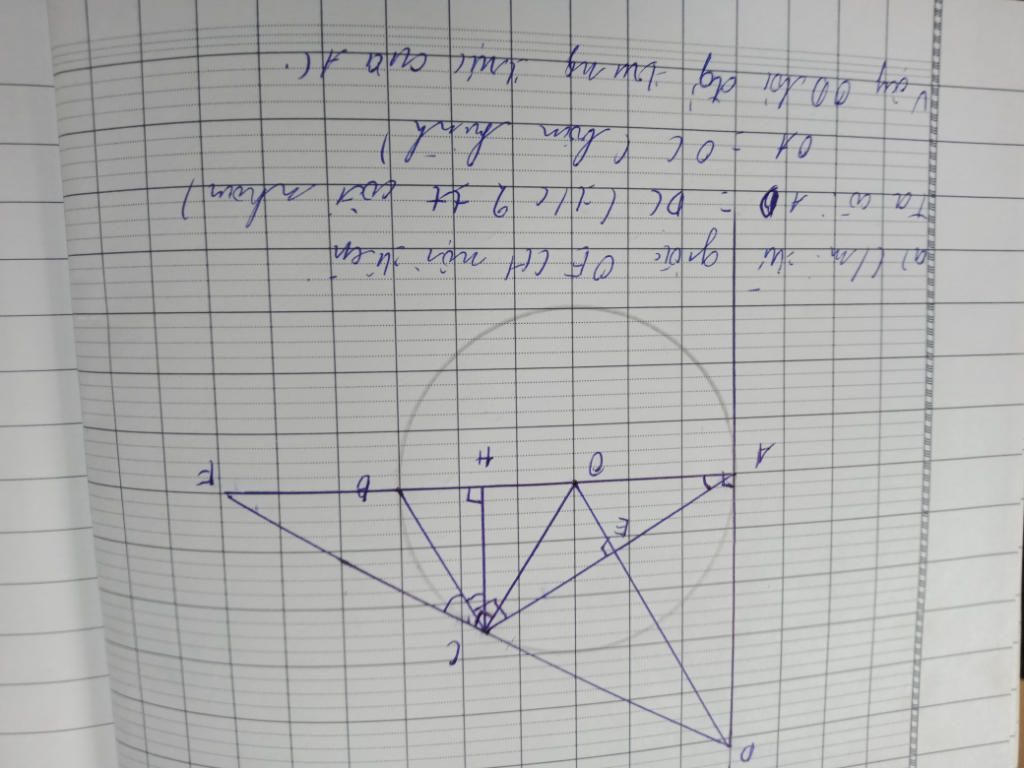 D
C
E
A
O
H
B
F
a) C/m: tứ giác OECH nội tiếp
Ta có: AD = DC (T/c 2 tt cắt nhau)
OA = OC (bán kính)
Vậy OD là đg trung trực của AC.